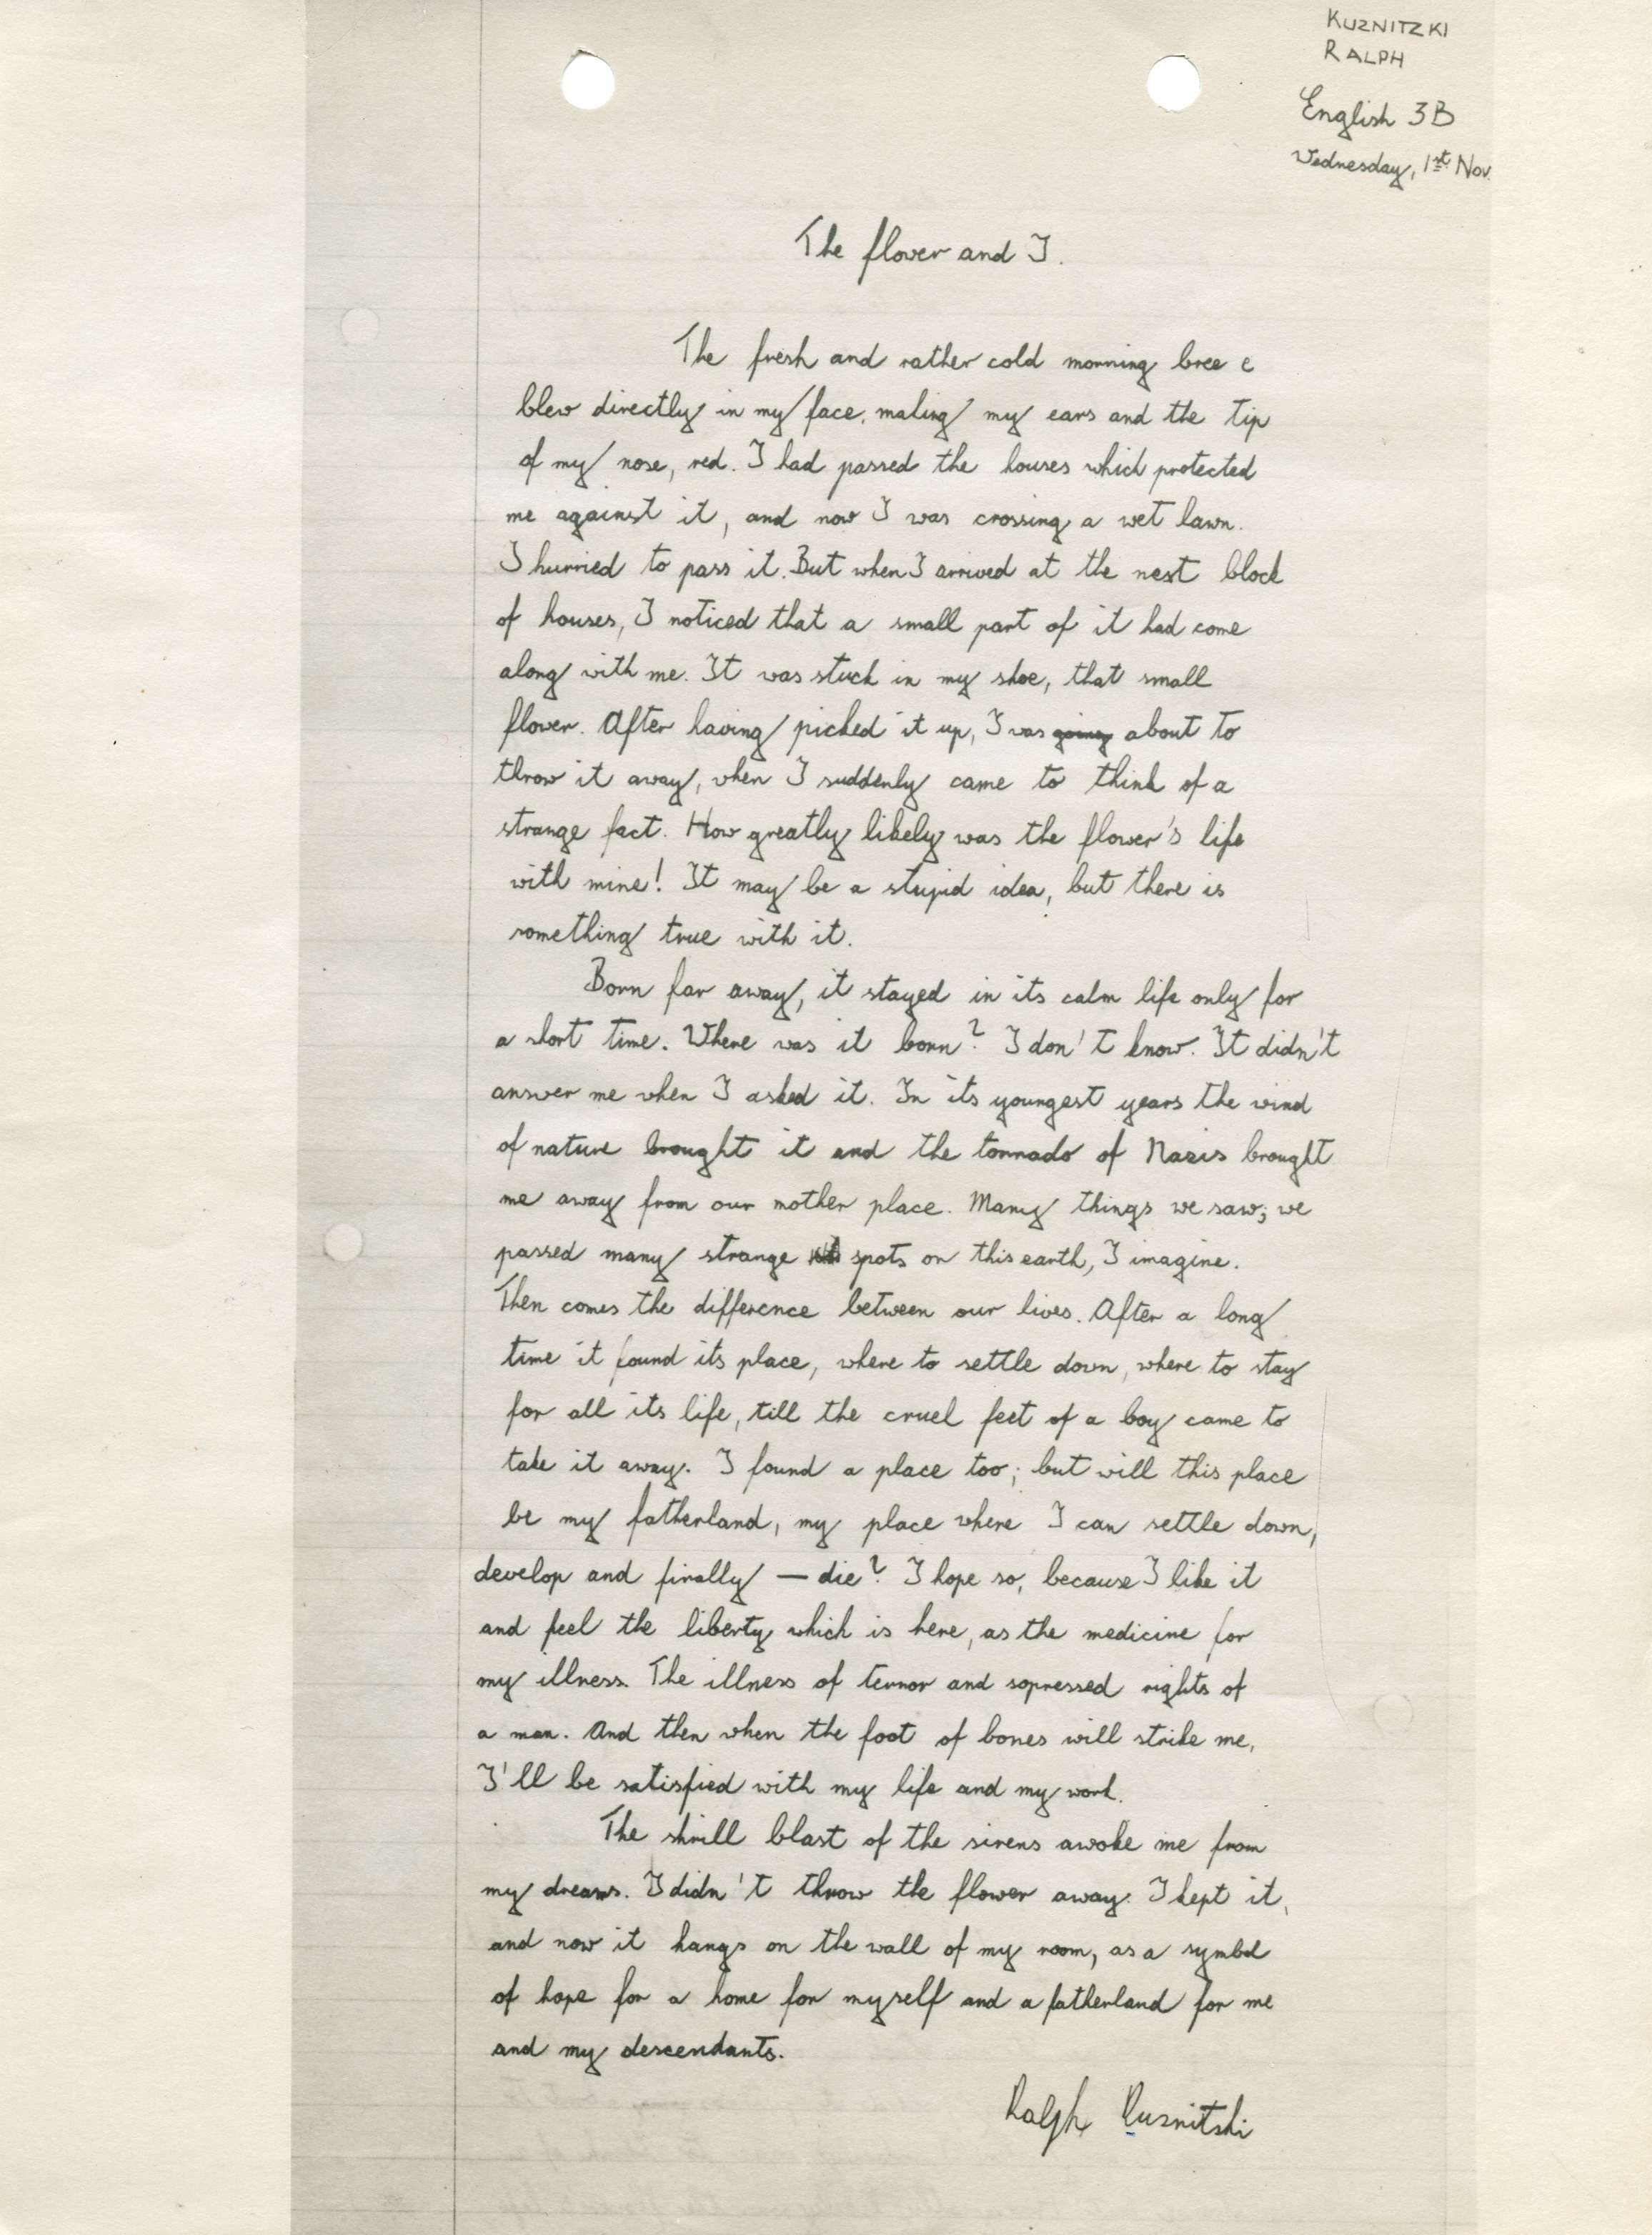 KUZNITZKI
RALPH
English 3B
Wednesday, 1st Nov.
The flower and I.
The fresh and rather cold morning bree e
blew directly in my face, making my ears and the tip
of my nose, red. I had passed the houses which protected
me against it, and now I was crossing a wet lawn.
I hurried to pass it. But when I arrived at the next block
of houses, I noticed that a small part of it had come
along with me. It was stuck in my shoe, that small
flower. After having picked it up, I was going about to
throw it away, when I suddenly came to think of a
strange fact. How greatly likely was the flower's life
with mine! It may be a stupid idea, but there is
something true with it.
Born far away, it stayed in its calm life only for
a short time. Where was it born? I don't know. It didn't
answer me when I asked it. In its youngest years the wind
of nature brought it and the tornado of Nazis brought
me away from our mother place. Many things we saw; we
passed many strange spots on this earth, I imagine.
Then comes the difference between our lives. After a long
time it found its place, where to settle down, where to stay
for all its life, till the cruel feet of a boy came to
take it away. I found a place too; but will this place
be my fatherland, my place where I can settle down,
develop and finally — die? I hope so, because I like it
and feel the liberty which is here, as the medicine for
my illness. The illness of terror and sopressed rights of
a man. And then when the foot of bones will strike me,
I'll be satisfied with my life and my work.
The shrill blast of the sirens awoke me from
my dreams. I didn't throw the flower away. I kept it,
and now it hangs on the wall of my room, as a symbol
of hope for a home for myself and a fatherland for me
and my descendants.
Ralph Kuznitzki